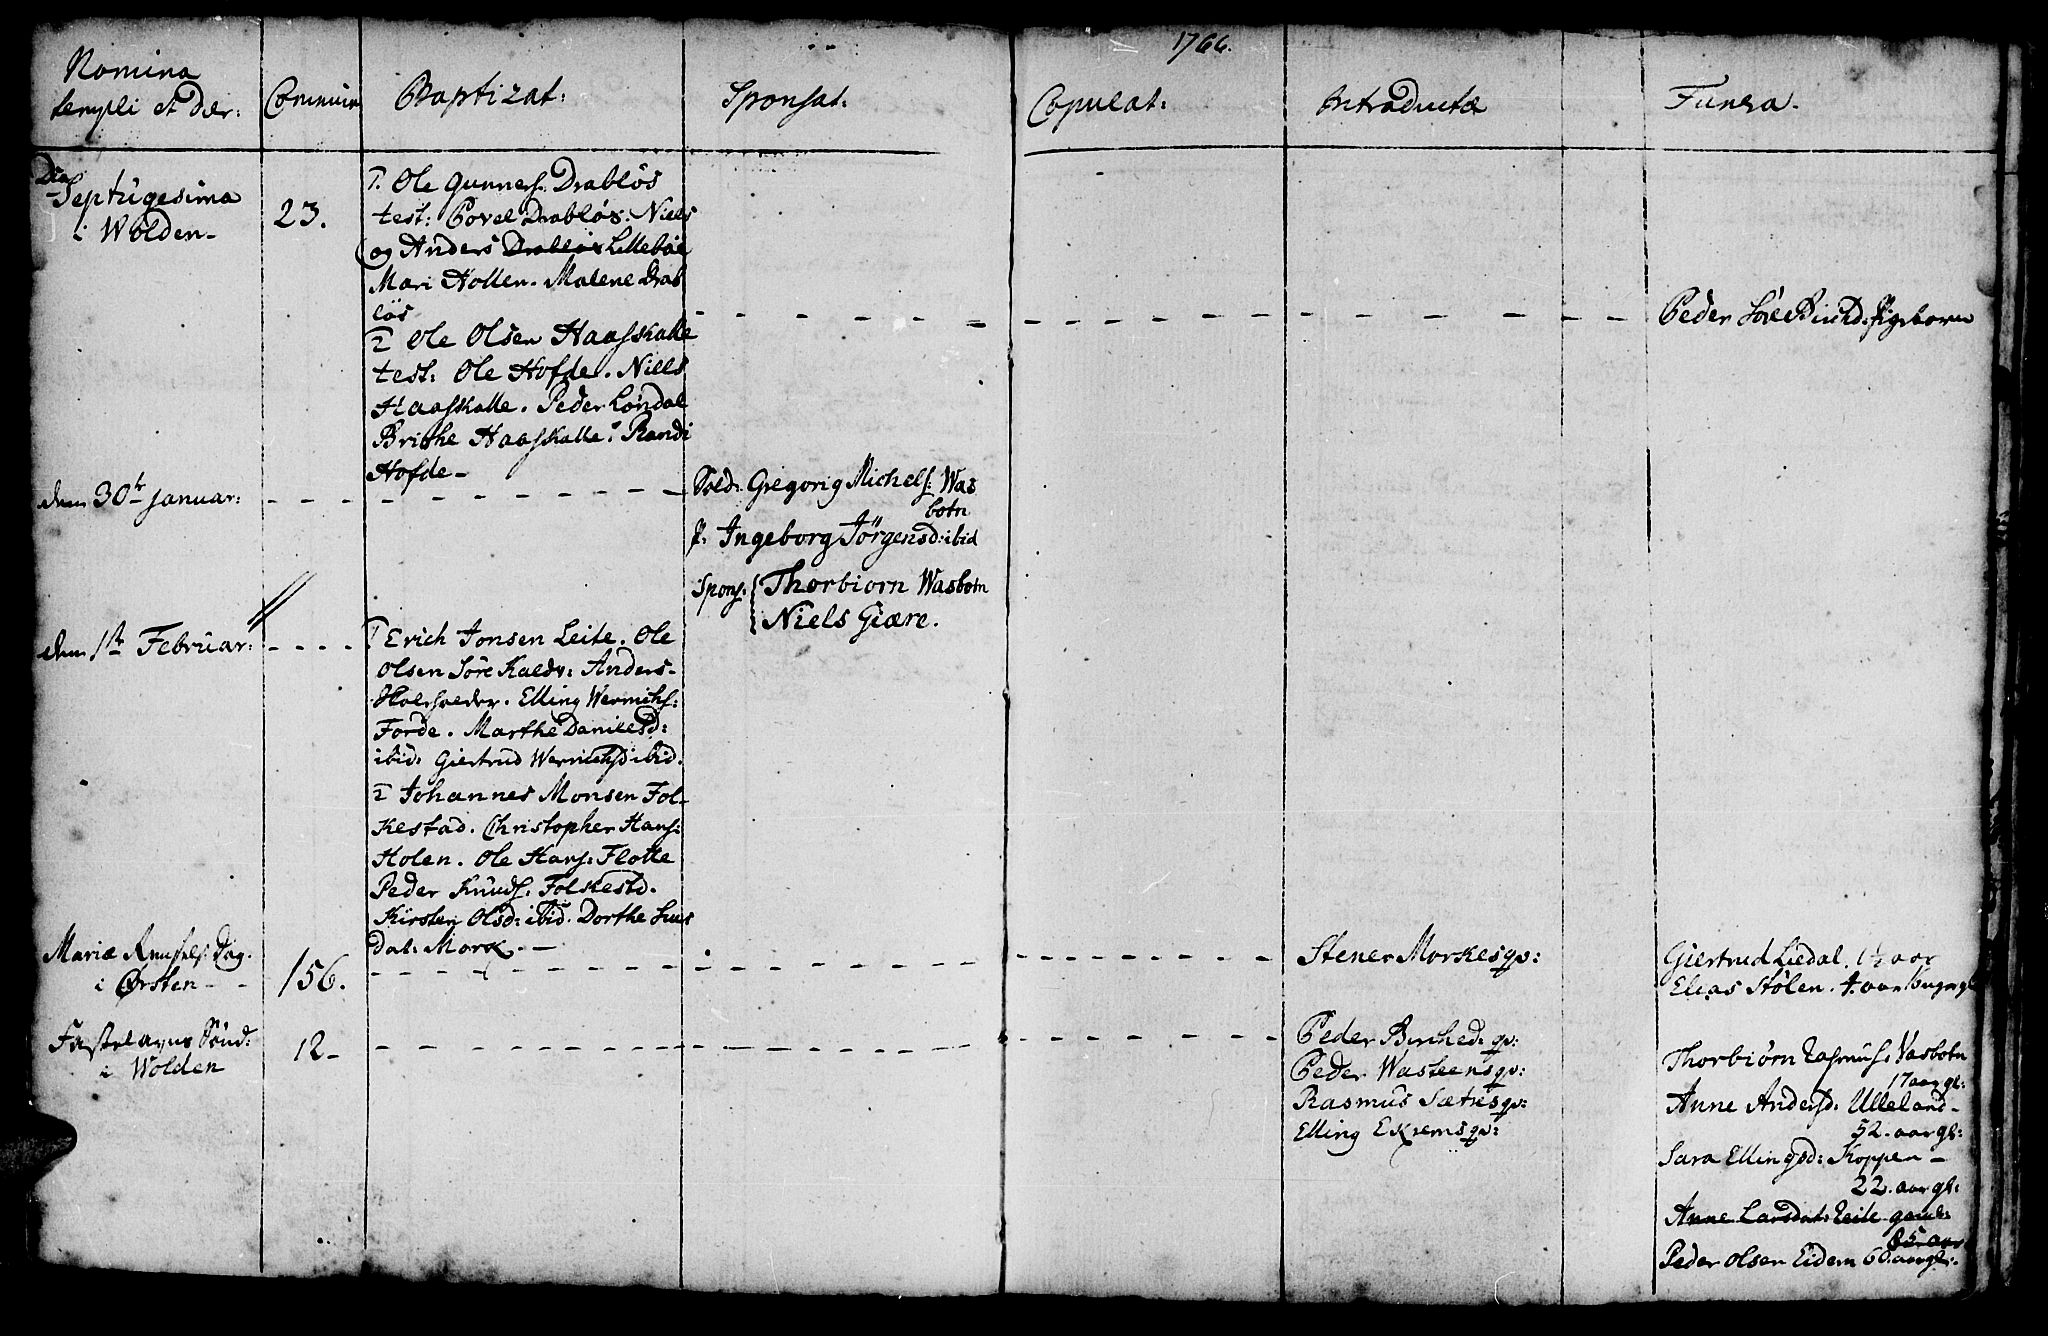 1766.
Nomina
templi et Dier:
Commun
Baptizat:
Sponsat:
Copulat:
Introductæ
Funera.
Dca
Septugesima
i Wolden-
23.
1. Ole Gunners: Drabløs
test: Povel Drabløs: Niels
og Anders Drabløs Lillebøe
Mari Hollen. Malene Drab
løs
2 Ole Olsen Haasskalle
test: Ole Hofde. Niels
Haasskalle. Peder Løndal
Brithe Haasskalle. Randi
Hofde-
Peder Søre Birched: Pigebarn
den 30te Januar:
Sold: Gregorig Michels: Was
botn
P: Ingeborg Jørgensd: ibid
Spons: Thorbiørn Wasbotn
Niels Giære.
den 1te Februar:
1 Erich Jonsen Leite. Ole
Olsen Søre Kaldv: Anders
Elling Wernichs:
Forde. Marthe Danielsd:
ibid: Giertrud Wernichsd ibid.
2 Johannes Monsen Fol-
kestad. Christopher Hans:
Holen. Ole Hans: Flotte
Peder Knuds: Folkestd.
Kirsten Olsd: ibid. Dorthe Siurs
dat: Mork. -
Mariæ Rensels: Dag.
i Ørsten- -
156.
Stener Morkes qv:
Giertrud Liedal. 1½ aar
Elias Stølen. 4. aar
Fastelavns Sønd:
i Wolden
12-
Peder Birched: qv:
Peder Wasteens qv:
Rasmus Sætres qv:
Elling Ekrems qv:
Thorbiørn Rasmus: Vasbotn
17 aar gl:
Anne Andersd: Ulleland-
52. aar gl:
Sara Ellingsd: Koppen-
22. aar gl:
Anne Larsdat: Leite gaml:
85 aar
Peder Olsen Eidem 60. aar gl:.